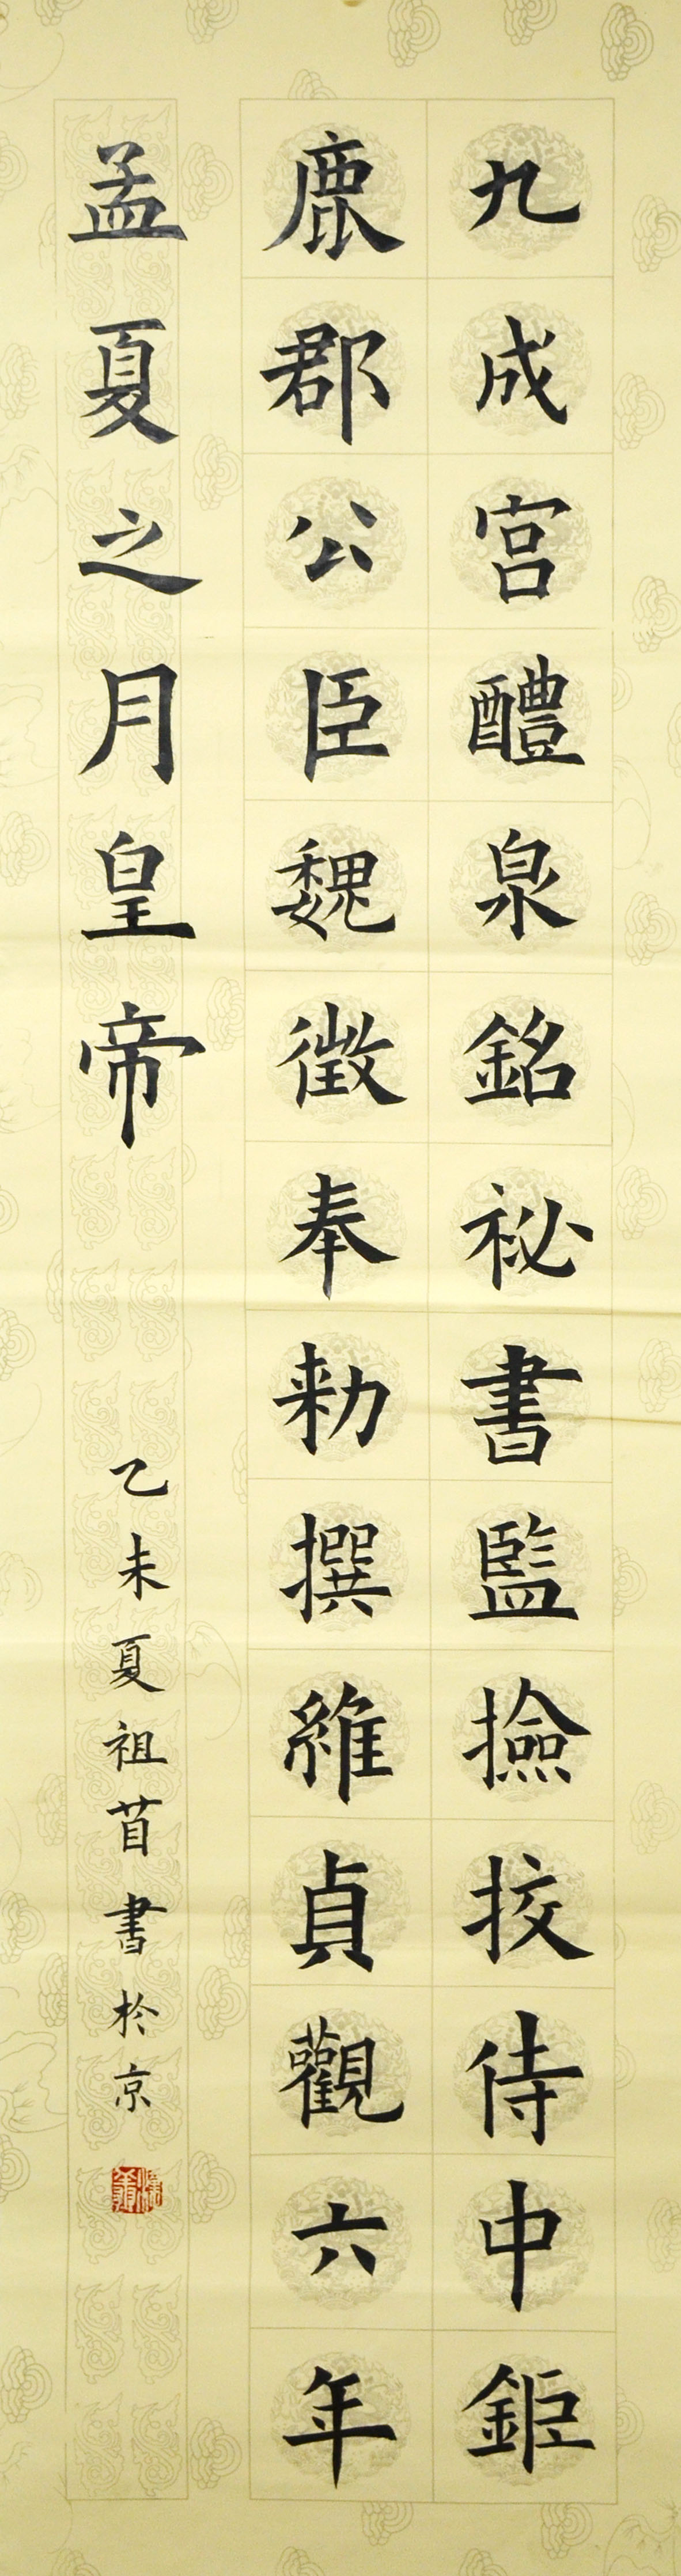 九成宫醴泉銘祕書監撿挍侍中鉅
鹿郡公臣魏徵奉勑撰維貞觀六年
孟夏之月皇帝
乙未夏祖苜書於京